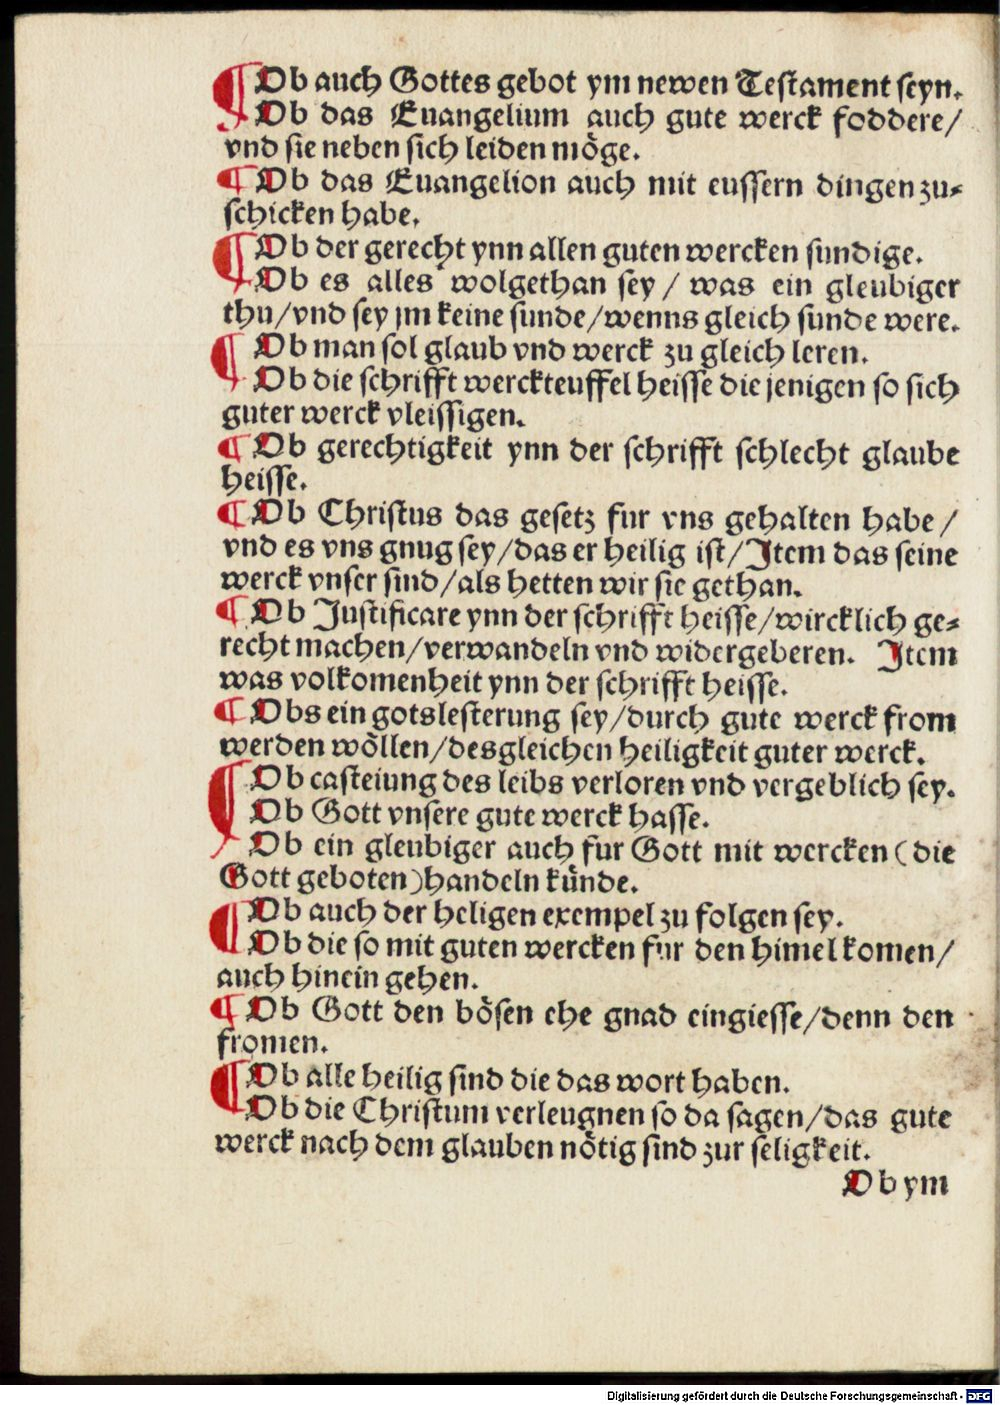 ¶ Ob auch Gottes gebot ym newen Testament seyn.
Ob das Euangelium auch gute werck foddere/
vnd sie neben sich leiden möge.
¶ Ob das Euangelion auch mit eussern dingen zu-
schicken habe.
¶ Ob der gerecht ynn allen guten wercken sundige.
Ob es alles wolgethan sey / was ein gleubiger
thu/vnd sey jm keine sunde/wenns gleich sunde were.
¶ Ob man sol glaub vnd werck zu gleich leren.
Ob die schrifft werckteuffel heisse die jenigen so sich
guter werck vleissigen.
¶ Ob gerechtigkeit ynn der schrifft schlecht glaube
heisse.
¶ Ob Christus das gesetz fur vns gehalten habe/
vnd es vns gnug sey/das er heilig ist/Jtem das seine
werck vnser sind/als hetten wir sie gethan.
¶ Ob Justificare ynn der schrifft heisse/wircklich ge-
recht machen/verwandeln vnd widergeberen. Jtem
was volkomenheit ynn der schrifft heisse.
¶ Obs ein gotslesterung sey/durch gute werck from
werden wöllen/desgleichen heiligkeit guter werck.
¶ Ob casteiung des leibs verloren vnd vergeblich sey.
Ob Gott vnsere gute werck hasse.
Ob ein gleubiger auch fur Gott mit wercken (die
Gott geboten) handeln künde.
¶ Ob auch der heligen exempel zu folgen sey.
Ob die so mit guten wercken fur den himel komen/
auch hinein gehen.
¶ Ob Gott den bösen ehe gnad eingiesse/denn den
fromen.
¶ Ob alle heilig sind die das wort haben.
Ob die Christum verleugnen so da sagen/das gute
werck nach dem glauben nötig sind zur seligkeit.
Ob ym
Digitalisierung gefördert durch die Deutsche Forschungsgemeinschaft - DFG